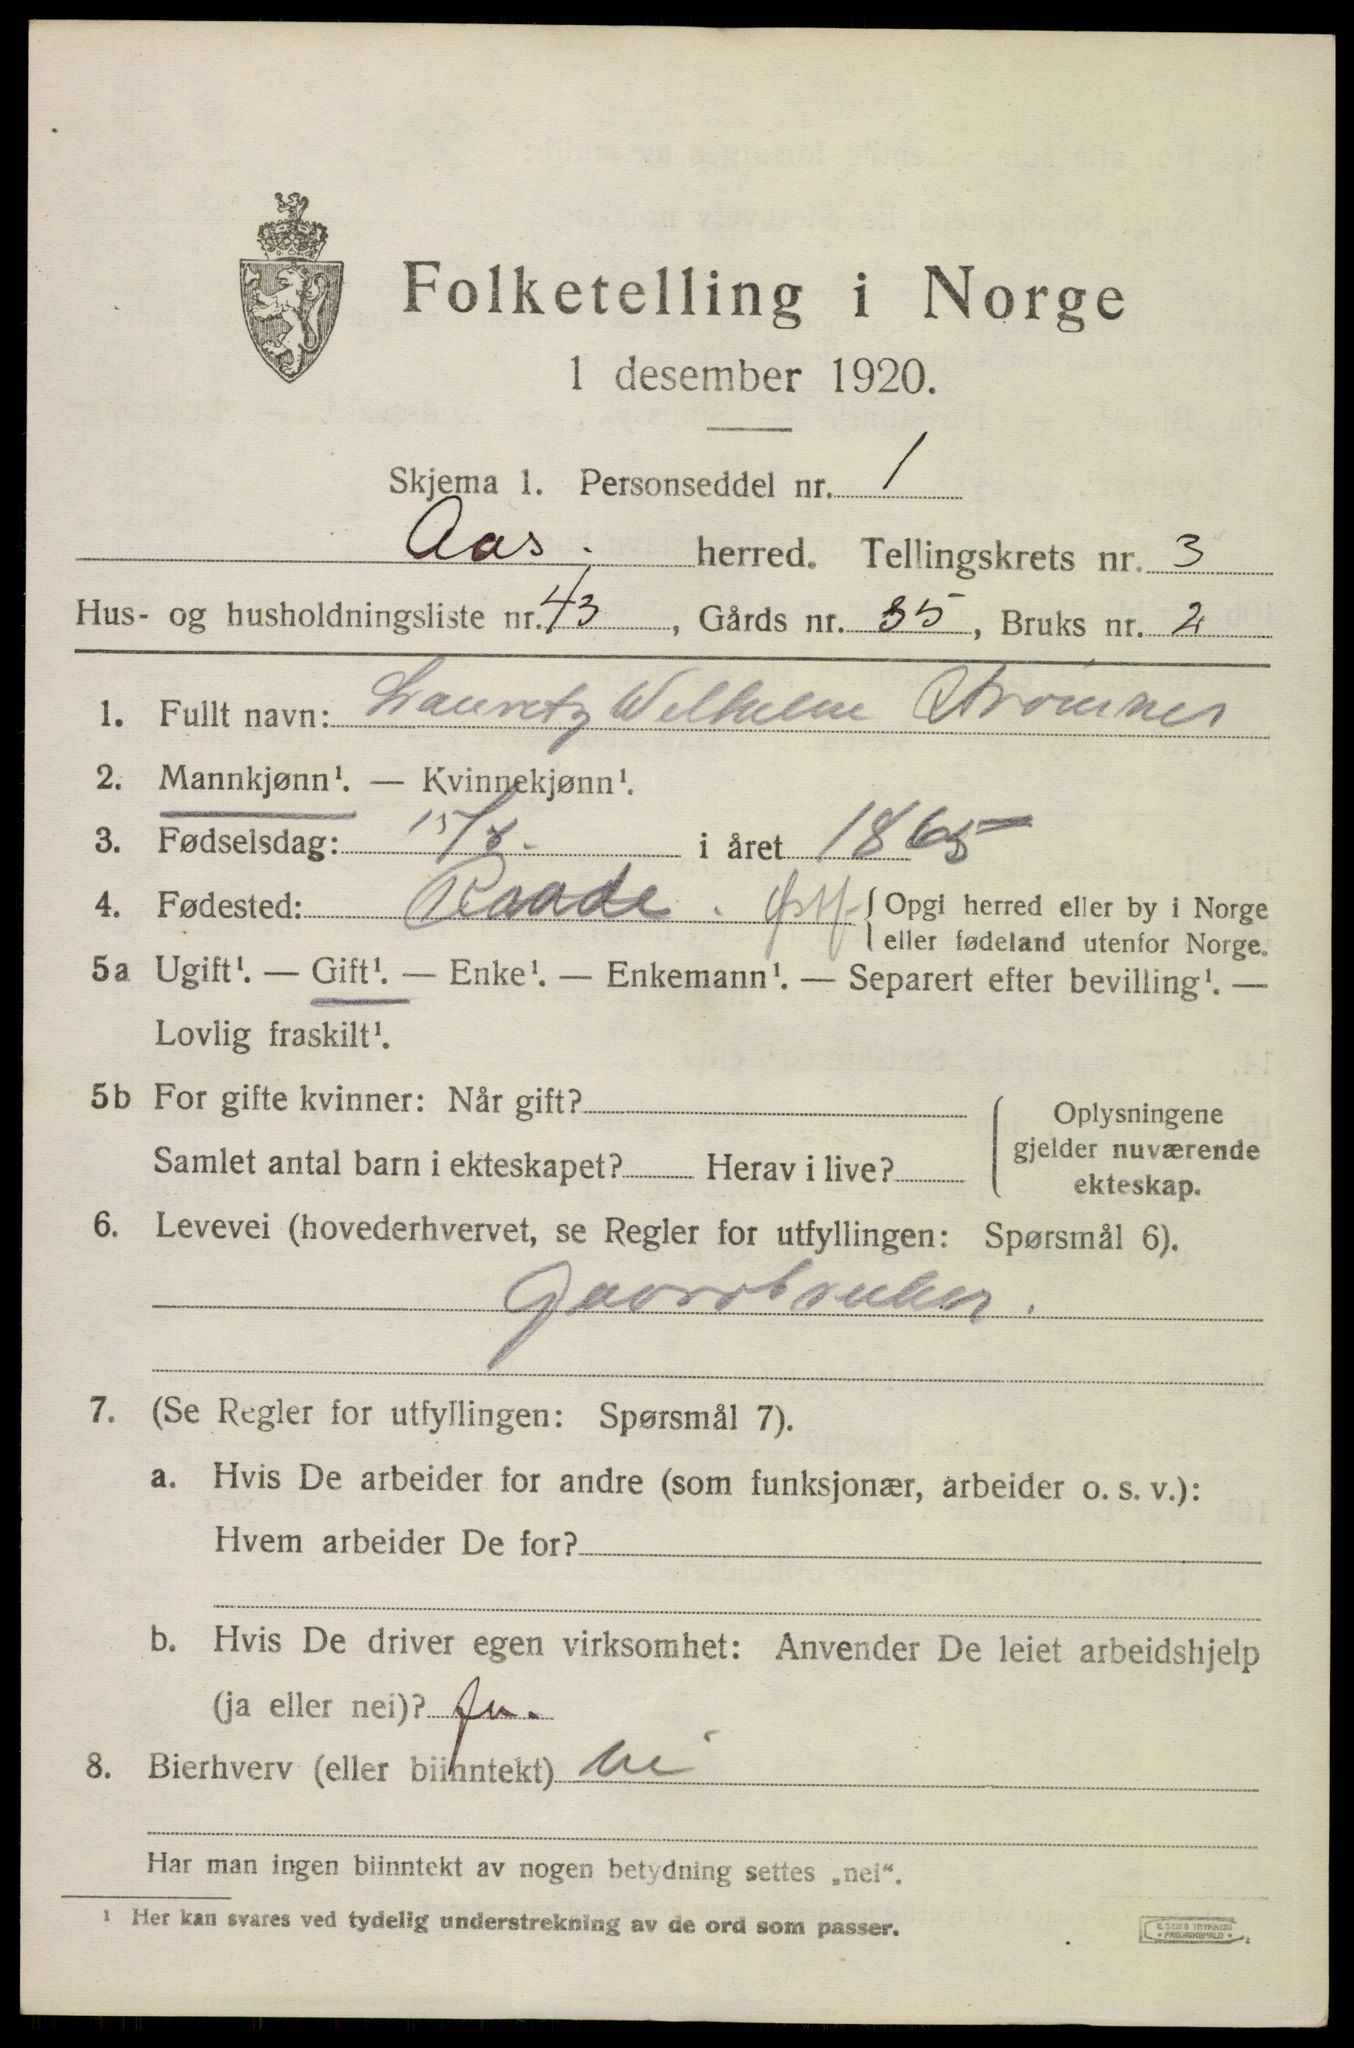 Folketelling i Norge
1 desember 1920.
Skjema 1. Personseddel nr. 1
Aas. herred. Tellingskrets nr. 3
Hus- og husholdningsliste nr. 43, Gårds nr. 35, Bruks nr. 2
1. Fullt navn: Lauretz Wilhelm Strømnes
2. Mannkjønn¹. — Kvinnekjønn¹.
3. Fødselsdag: 15/8. i året 1865
4. Fødested: Raade. Østf. { Opgi herred eller by i Norge
eller fødeland utenfor Norge.
5a Ugift¹. — Gift¹. — Enke¹. — Enkemann¹. — Separert efter bevilling¹. —
Lovlig fraskilt¹.
5b For gifte kvinner: Når gift?
Samlet antal barn i ekteskapet? Herav i live?
Oplysningene
gjelder nuværende
ekteskap.
6. Levevei (hovederhvervet, se Regler for utfyllingen: Spørsmål 6).
Gaardbruker.
7. (Se Regler for utfyllingen: Spørsmål 7).
a. Hvis De arbeider for andre (som funksjonær, arbeider o. s. v.):
Hvem arbeider De for?
b. Hvis De driver egen virksomhet: Anvender De leiet arbeidshjelp
(ja eller nei)? ja.
8. Bierhverv (eller biinntekt) nei
Har man ingen biinntekt av nogen betydning settes „nei“.
¹ Her kan svares ved tydelig understrekning av de ord som passer.